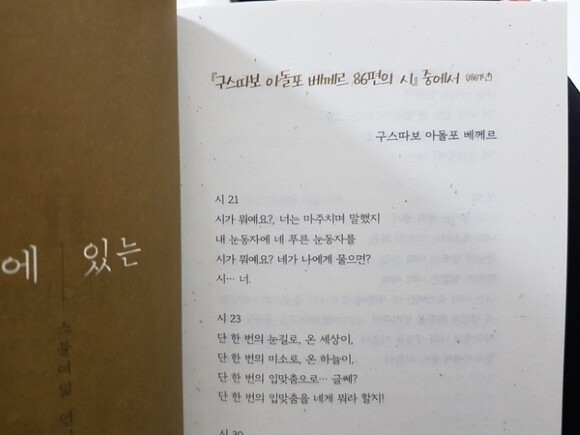 『구스따보 아돌포 베께르 86편의 시』 중에서
구스따보 아돌포 베께르
시 21
시가 뭐예요?, 너는 마주치며 말했지
내 눈동자에 네 푸른 눈동자를
시가 뭐예요? 네가 나에게 물으면?
시… 너.
시 23
단 한 번의 눈길로, 온 세상이,
단 한 번의 미소로, 온 하늘이,
단 한 번의 입맞춤으로… 글쎄?
단 한 번의 입맞춤을 네게 뭐라 할지!
시 30
에 있는